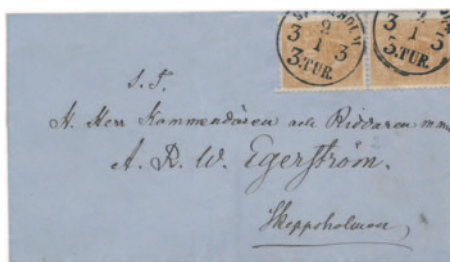 STOCKHOLM
3 9 3
1
3.TUR.
3 9 3
1
3.TUR.
S. T.
H. Herr Kommendören och Riddaren m.m.
A. R. W. Egerström.
Skeppsholmen